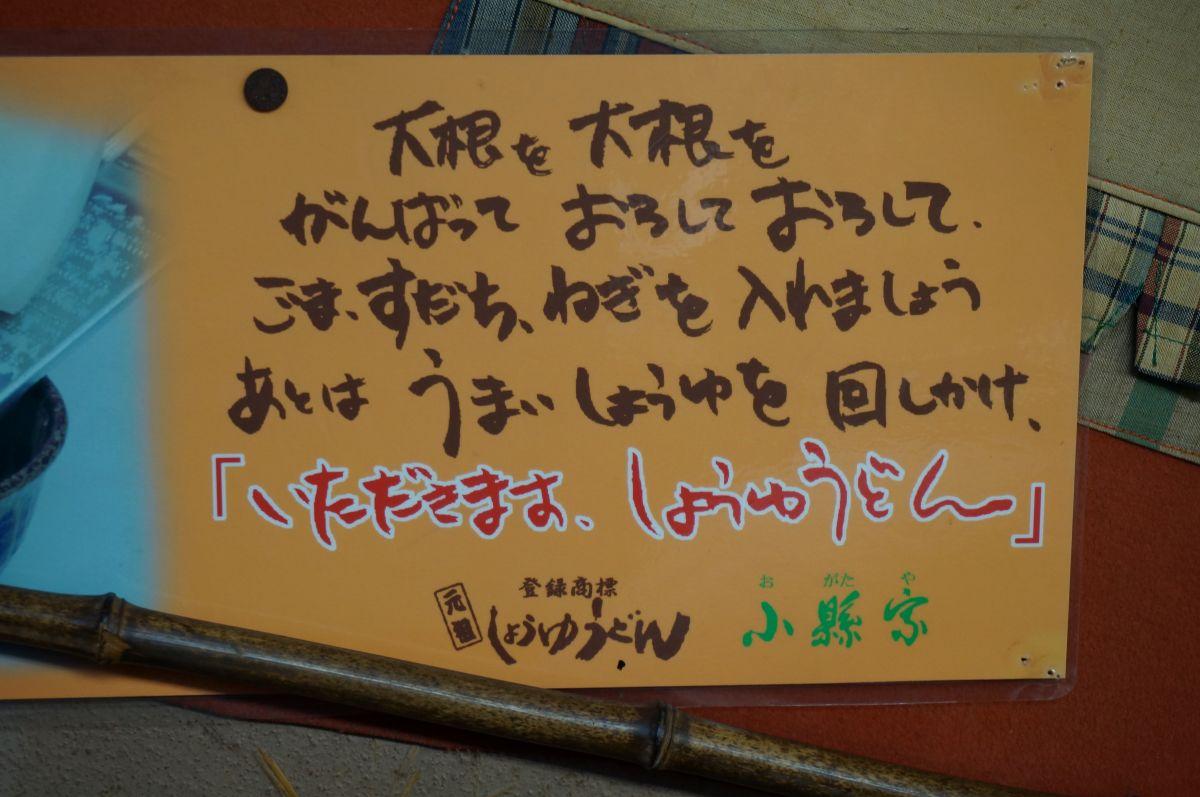 大根を 大根を
がんばって おろして おろして、
ごま、すだち、ねぎを 入れましょう
あとは うまい しょうゆを 回しかけ、
「いただきます、しょうゆうどん」
登録商標
元祖 しょうゆうどん
おがたや
小縣家